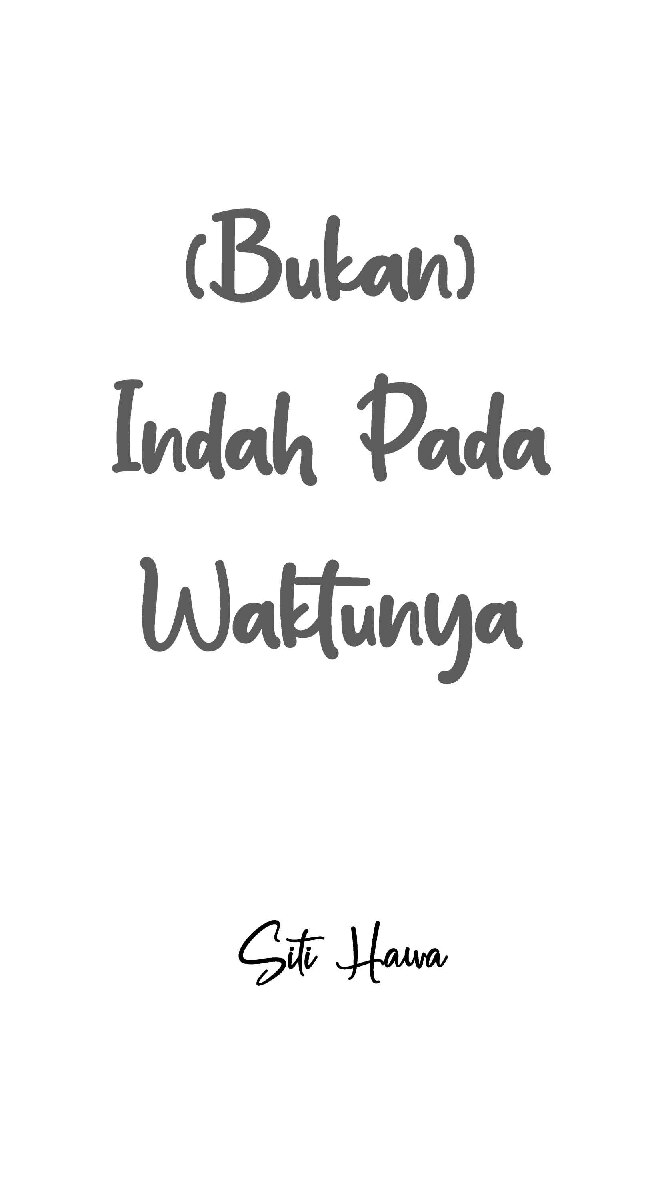 (Bukan)
Indah Pada
Waktunya
Siti Hawa